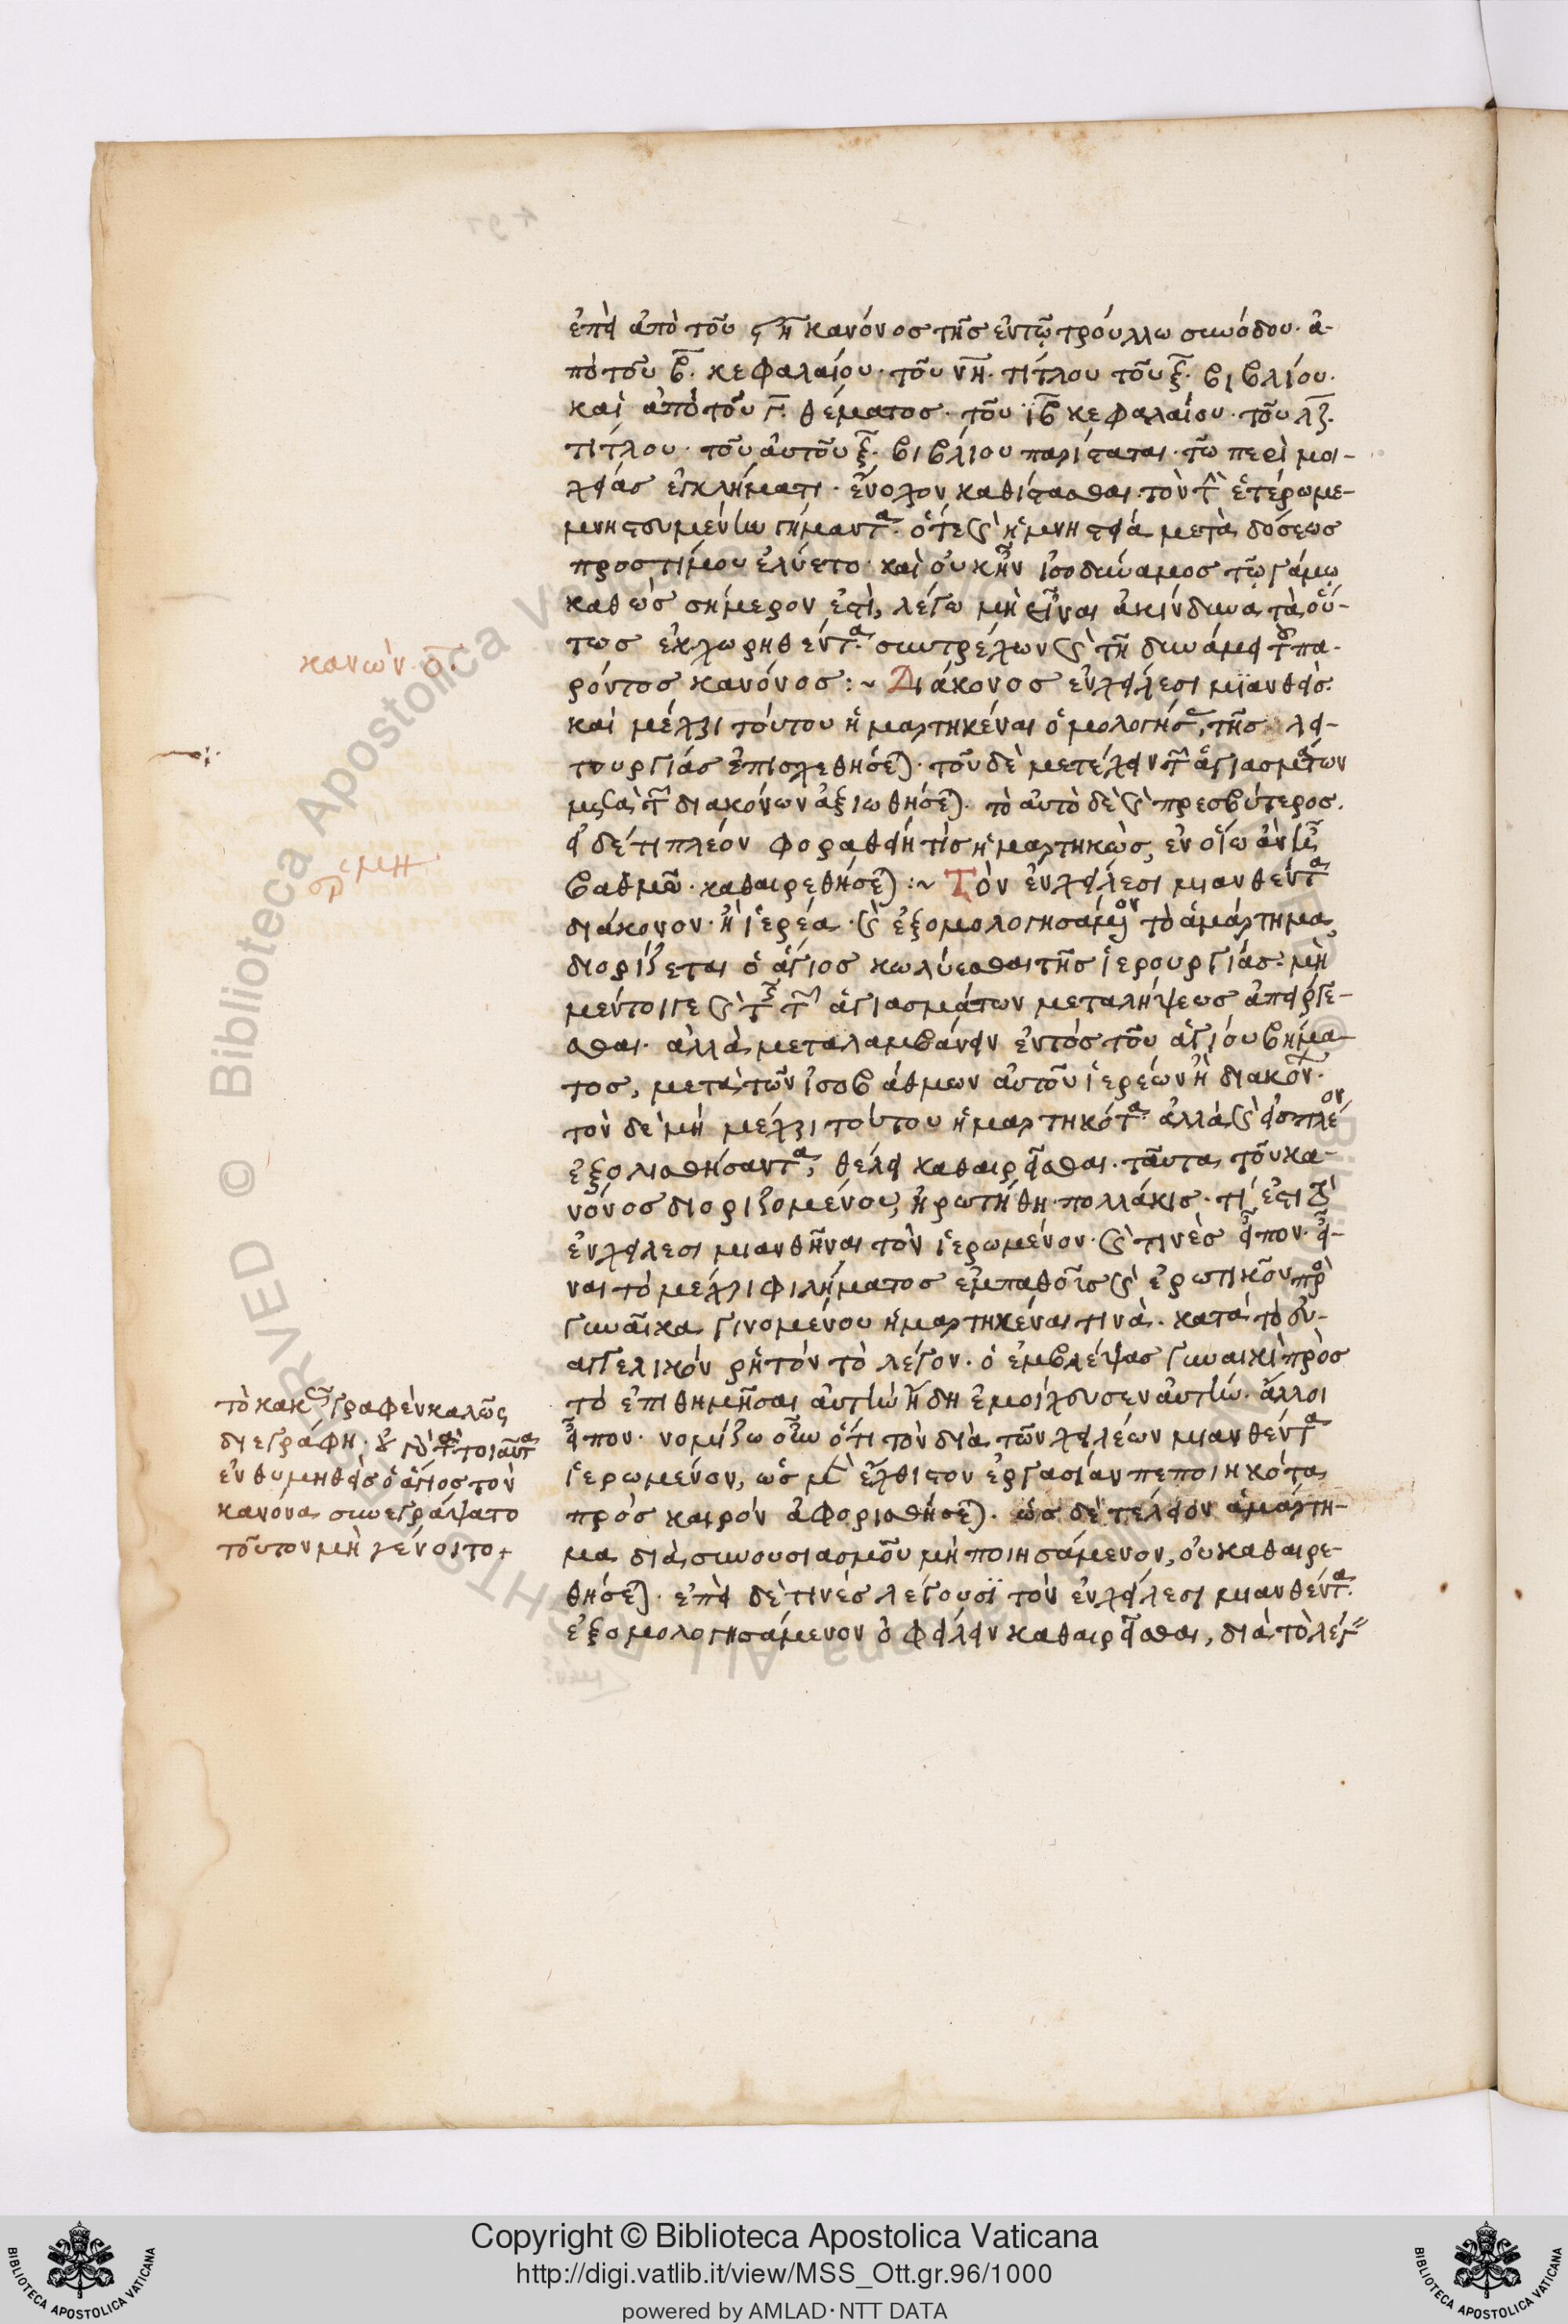 ἐπεὶ ἀπὸ τοῦ ϟη κανόνος τῆς ἐν τῷ τρούλλω συνόδου· ἀ-
πὸ τοῦ β. κεφαλαίου· τοῦ νη. τίτλου τοῦ ξ. βιβλίου·
καὶ ἀπὸ τοῦ γ. θέματος· τοῦ ιβ κεφαλαίου· τοῦ λζ.
τίτλου· τοῦ αὐτοῦ ξ. βιβλίου παρίσταται· τῶ περὶ μοι-
χείας ἐγκλήματι· ἔνοχον καθίστασθαι· τὸν τὴν ἑτέρω με-
μνηστευμένην γήμαντα· ὅτε καὶ ἡ μνηστεία μετὰ δόσεως
προστίμου ἐλύετο· καὶ οὐκ ἦν ἰσοδύναμος τῷ γάμῳ
καθὼς σήμερον ἐστὶ, λέγω μὴ εἶναι ἀκίνδυνα τὰ οὕ-
τως ἐκχωρηθέντα· συντρέχων καὶ τῆ δυνάμει τοῦ πα-
ρόντος κανόνος :~ Διάκονος ἐν χείλεσι μιανθεὶς·
καὶ μέχρι τούτου ἡμαρτηκέναι ὁμολογήσας, τῆς λει-
τουργίας ἐπισχεθήσεται· τοῦ δὲ μετέχειν τῶν ἁγιασμάτων
μετὰ τῶν διακόνων ἀξιωθήσεται· τὸ αὐτὸ δὲ καὶ πρεσβύτερος·
εἰ δέ τι πλέον φοραθείη τὶς ἡμαρτηκὼς, ἐν οἵω ἂν εἴη
βαθμῶ· καθαιρεθήσεται :~ Τὸν ἐν χείλεσι μιανθέντα
διάκονον· ἢ ἱερέα· καὶ ἐξομολογησάμενον τὸ ἁμάρτημα
διορίζεται ὁ ἅγιος κωλύεσθαι τῆς ἱερουργίας· μὴ
μέντοιγε καὶ τῆς τῶν ἁγιασμάτων μεταλήψεως ἀπείργε-
σθαι· ἀλλὰ μεταλαμβάνειν ἐντὸς τοῦ ἁγίου βήμα-
τος, μετὰ τῶν ἰσοβάθμων αὐτοῦ ἱερέων ἢ διακόνων·
τὸν δὲ μὴ μέχρι τούτου ἡμαρτηκότα· ἀλλὰ καὶ εἰς πλέον
ἐξολισθήσαντα, θέλει καθαιρεῖσθαι· ταῦτα τοῦ κα-
νόνος διοριζομένου, ἠρωτήθη πολλάκις· τί ἐστι τὸ
ἐν χείλεσι μιανθῆναι τὸν ἱερωμένον· καὶ τινὲς εἶπον· εἶ-
ναι τὸ μέχρι φιλήματος ἐμπαθοῦς καὶ ἐρωτικοῦ πρὸς
γυναῖκα γινομένου ἡμαρτηκέναι τινὰ· κατὰ τὸ εὐ-
αγγελικὸν ῥητὸν τὸ λέγον· ὁ ἐμβλέψας γυναικὶ πρὸς
τὸ ἐπιθημῆσαι αὐτὴν ἤδη ἐμοίχευσεν αὐτὴν· ἄλλοι
εἶπον· νομίζω οὖν ὅτι τὸν διὰ τῶν χειλέων μιανθέντα
ἱερωμένον, ὡς μὲν ἔχθιστον ἐργασίαν πεποιηκότα
πρὸς καιρὸν ἀφορισθήσεται· ὡς δὲ τέλειον ἁμάρτη-
μα διὰ συνουσιασμοῦ μὴ ποιησάμενον, οὐ καθαιρε-
θήσεται· ἐπεὶ δὲ τινὲς λέγουσϊ τὸν ἐν χείλεσι μιανθέντα·
ἐξομολογησάμενον ὀφείλειν καθαιρεῖσθαι, διὰ τὸ λέγ
κανὼν· ο.
τὸ κακῶς γραφὲν καλῶς
διεγράφη· οὐ γὰρ τὰ τοιαῦτα
ἐνθυμηθεὶς ὁ ἅγιος τὸν
κανόνα συνεγράψατο
τοῦτον μὴ γένοιτο +
Copyright © Biblioteca Apostolica Vaticana
http://digi.vatlib.it/view/MSS_Ott.gr.96/1000
powered by AMLAD·NTT DATA
BIBLIOTECA APOSTOLICA VATICANA
BIBLIOTECA APOSTOLICA VATICANA